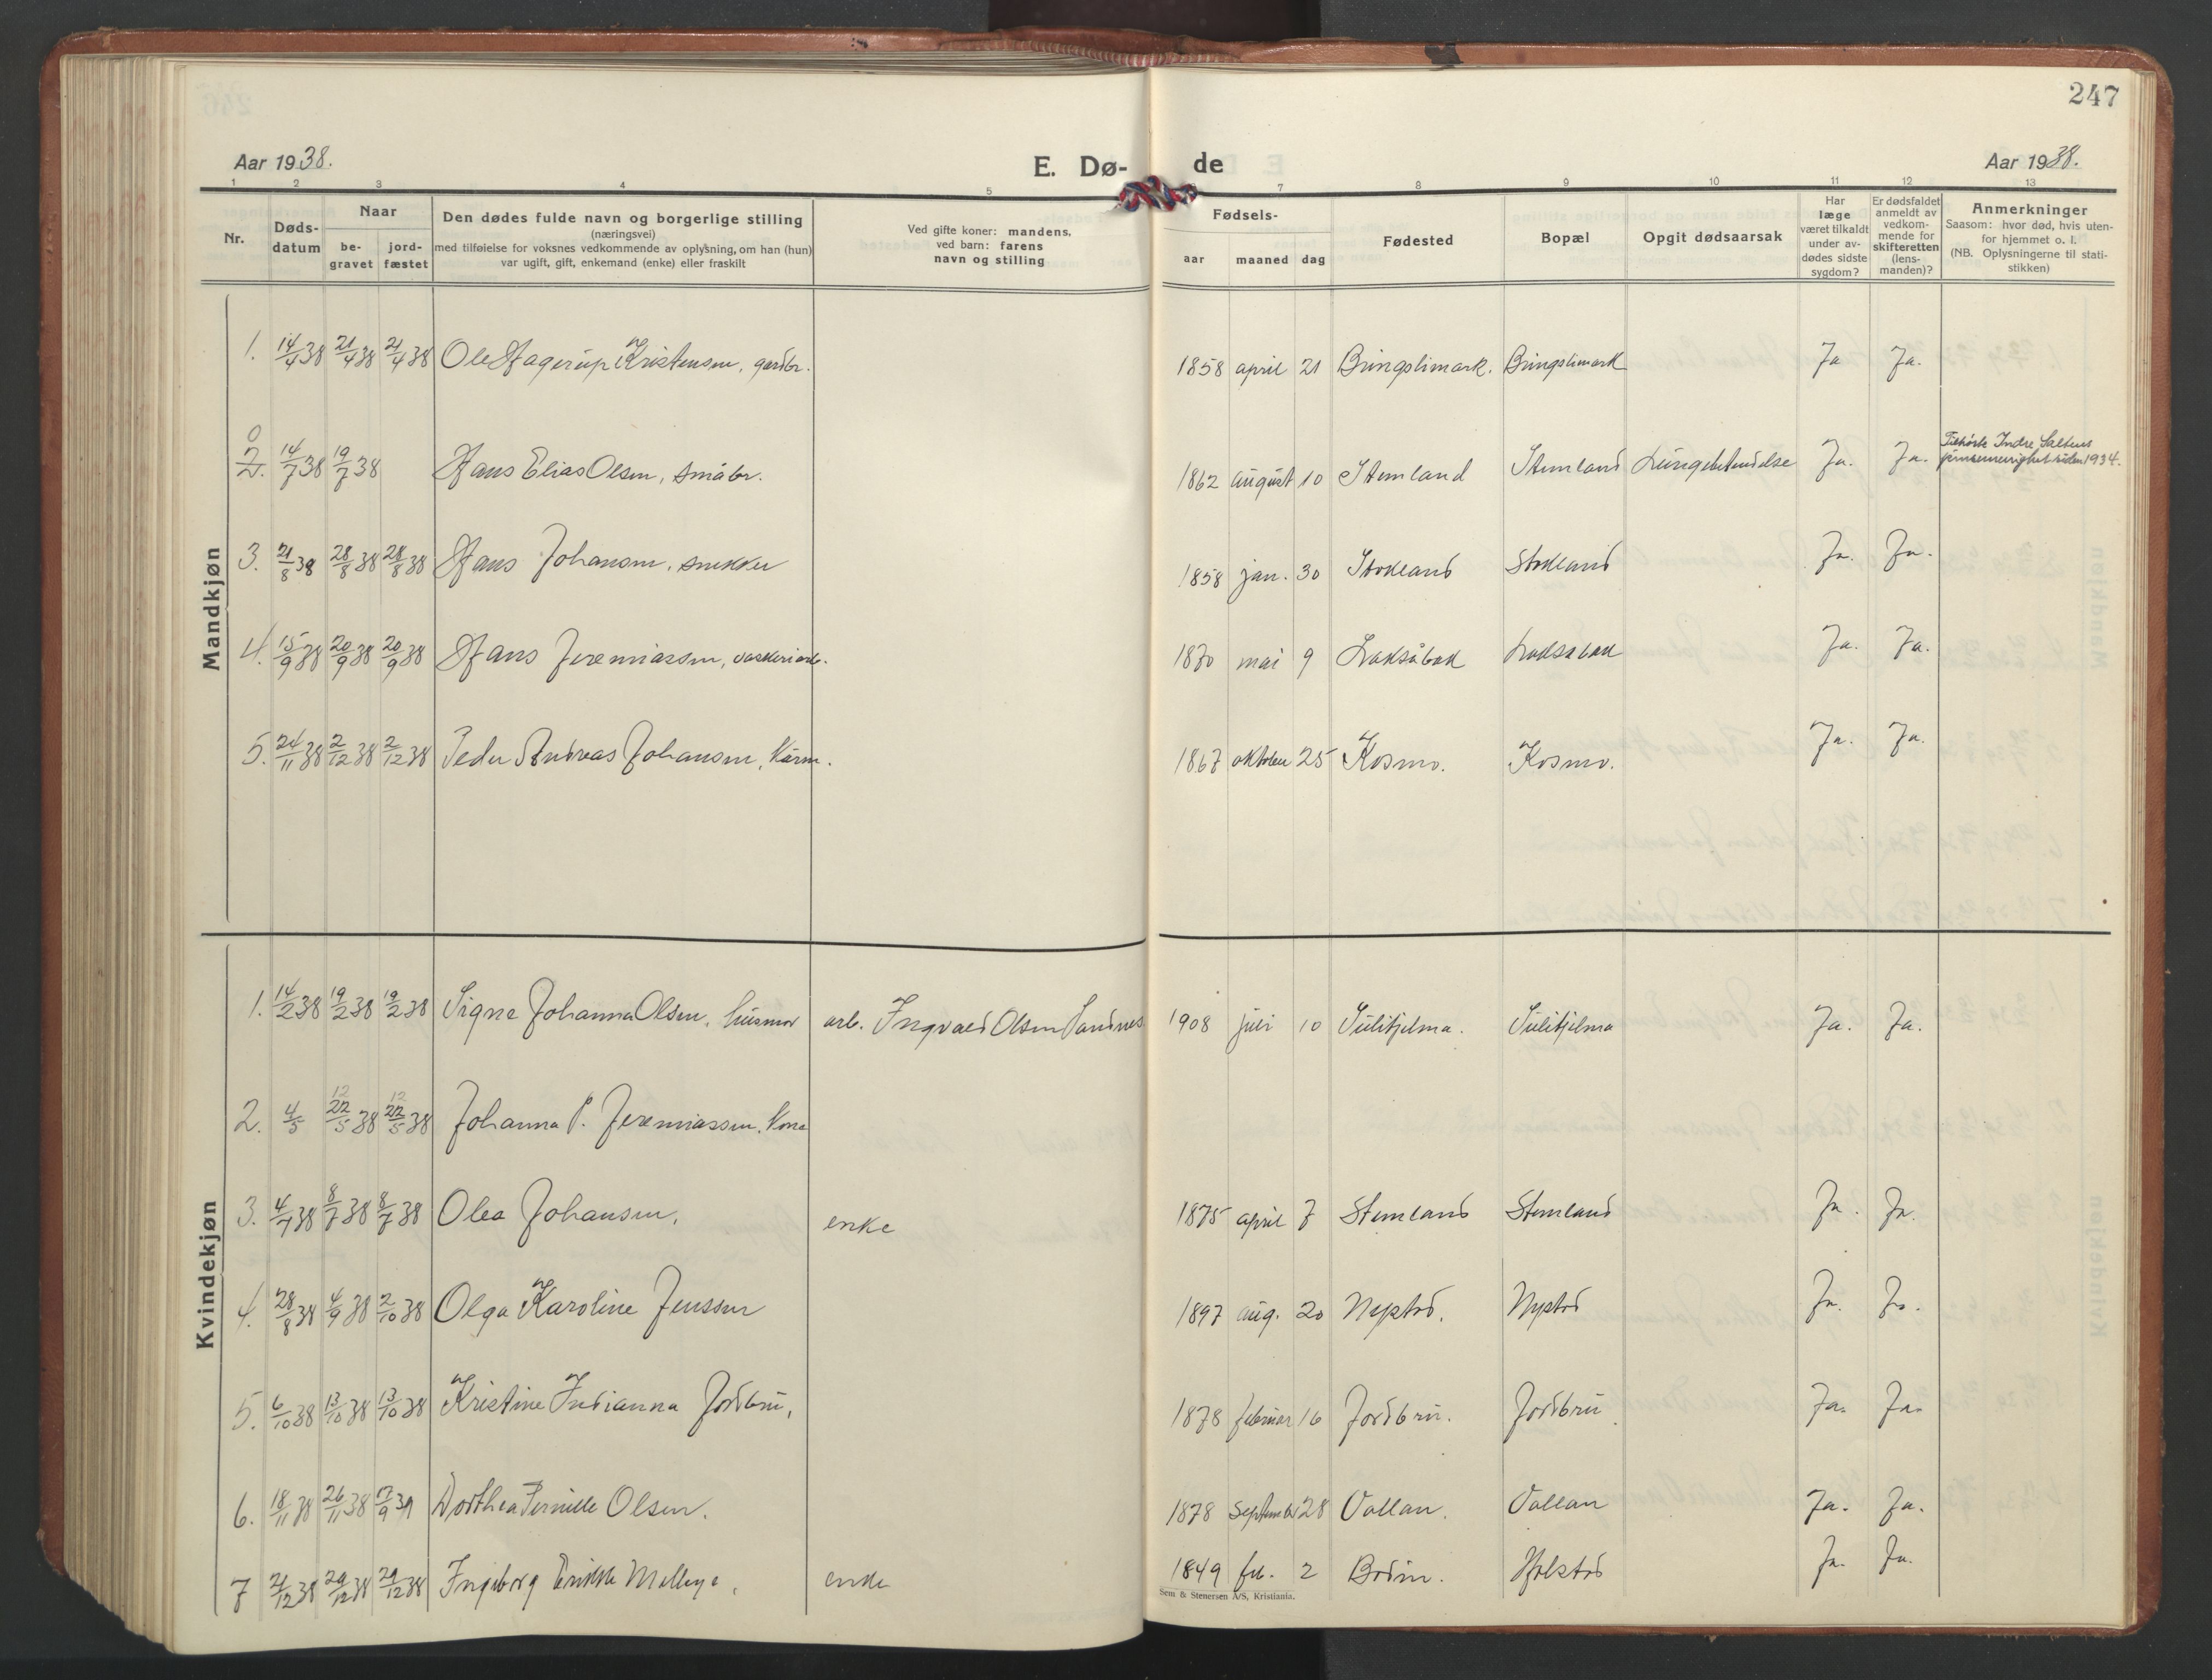 247
Aar 1938. E. Dø- de Aar 1938.
1 2 3 4 5 7 8 9 10 11 12 13
Nr.
Døds-
datum
Naar
be-
gravet
jord-
fæstet
Den dødes fulde navn og borgerlige stilling
(næringsvei)
med tilføielse for voksnes vedkommende av oplysning, om han (hun)
var ugift, gift, enkemand (enke) eller fraskilt
Ved gifte koner: mandens,
ved barn: farens
navn og stilling
Fødsels-
aar maaned dag
Fødested
Bopæl
Opgit dødsaarsak
Har
læge
været tilkaldt
under av-
dødes sidste
sygdom?
Er dødsfaldet
anmeldt av
vedkom-
mende for
skifteretten
(lens-
manden)?
Anmerkninger
Saasom: hvor død, hvis uten-
for hjemmet o. l.
(NB. Oplysningerne til stati-
stikken)
Mandkjøn
1. 14/4 38 21/4 38 21/4 38 Ole Hagerup Kristensen, gardbr. 1858 april 21 Bringslimark. Bringslimark Ja Ja.
0
2. 14/7 38 19/7 38 Hans Elias Olsen, småbr. 1862 august 10 Stemland Stemland Lungebetendelse Ja. Ja. Tilhørte Indre Saltens
siden 1934.
3. 21/8 38 28/8 38 28/8 38 Hans Johansen, snekker 1858 jan. 30 Stokland Stokland Ja. Ja.
4. 15/9 38 20/9 38 20/9 38 Hans Jeremiassen, vaskeriarb. 1870 mai 9 Laksåbak Laksabak Ja. Ja.
5. 24/11 38 2/12 38 2/12 38 Peder Andreas Johansen, kårm. 1867 oktober 25 Kosmo. Kosmo. Ja. Ja.
Kvindekjøn
1. 14/2 38 19/2 38 19/2 38 Signe Johanna Olsen, husmor arb. Ingvald Olsen Sandnes 1908 juli 10 Sulitjelma. Sulitjelma Ja. Ja.
12 12
2. 4/5 22/5 38 22/5 38 Johanna P. Jeremiassen, kone
3. 4/7 38 8/7 38 8/7 38 Olea Johansen, enke 1875 april 7 Stemland Stemland Ja. Ja.
4. 28/8 38 4/9 38 2/10 38 Olga Karoline Jenssen 1897 aug. 20 Nystad. Nystad Ja. Ja.
5. 6/10 38 13/10 38 13/10 38 Kristine Indianna Jordbru, 1878 februar 16 Jordbru. Jordbru. Ja. Ja.
6. 18/11 38 26/11 38 17/9 39 Dorthea Pernille Olsen. 1878 September 28 Vallan. Vallan Ja. Ja.
7 21/12 38 29/12 38 29/12 38 Ingeborg Erikke Mellbye, enke 1849 feb. 2 Bodin. Holstad Ja. Ja.
Sem & Stenersen A/S, Kristiania.